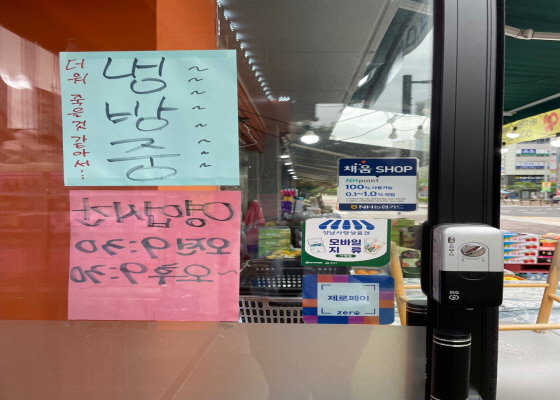 냉
방
중
~ ~ ~ ~ ~ ~
더워 죽을것 같아서...
영업시간
오전 9:30
~오후 9:30
채움 SHOP
NHpoint
100% 사용가능
0.1~1.0% 적립
NH농협카드
성남사랑상품권
모바일
지류
가맹점
제로페이
zero